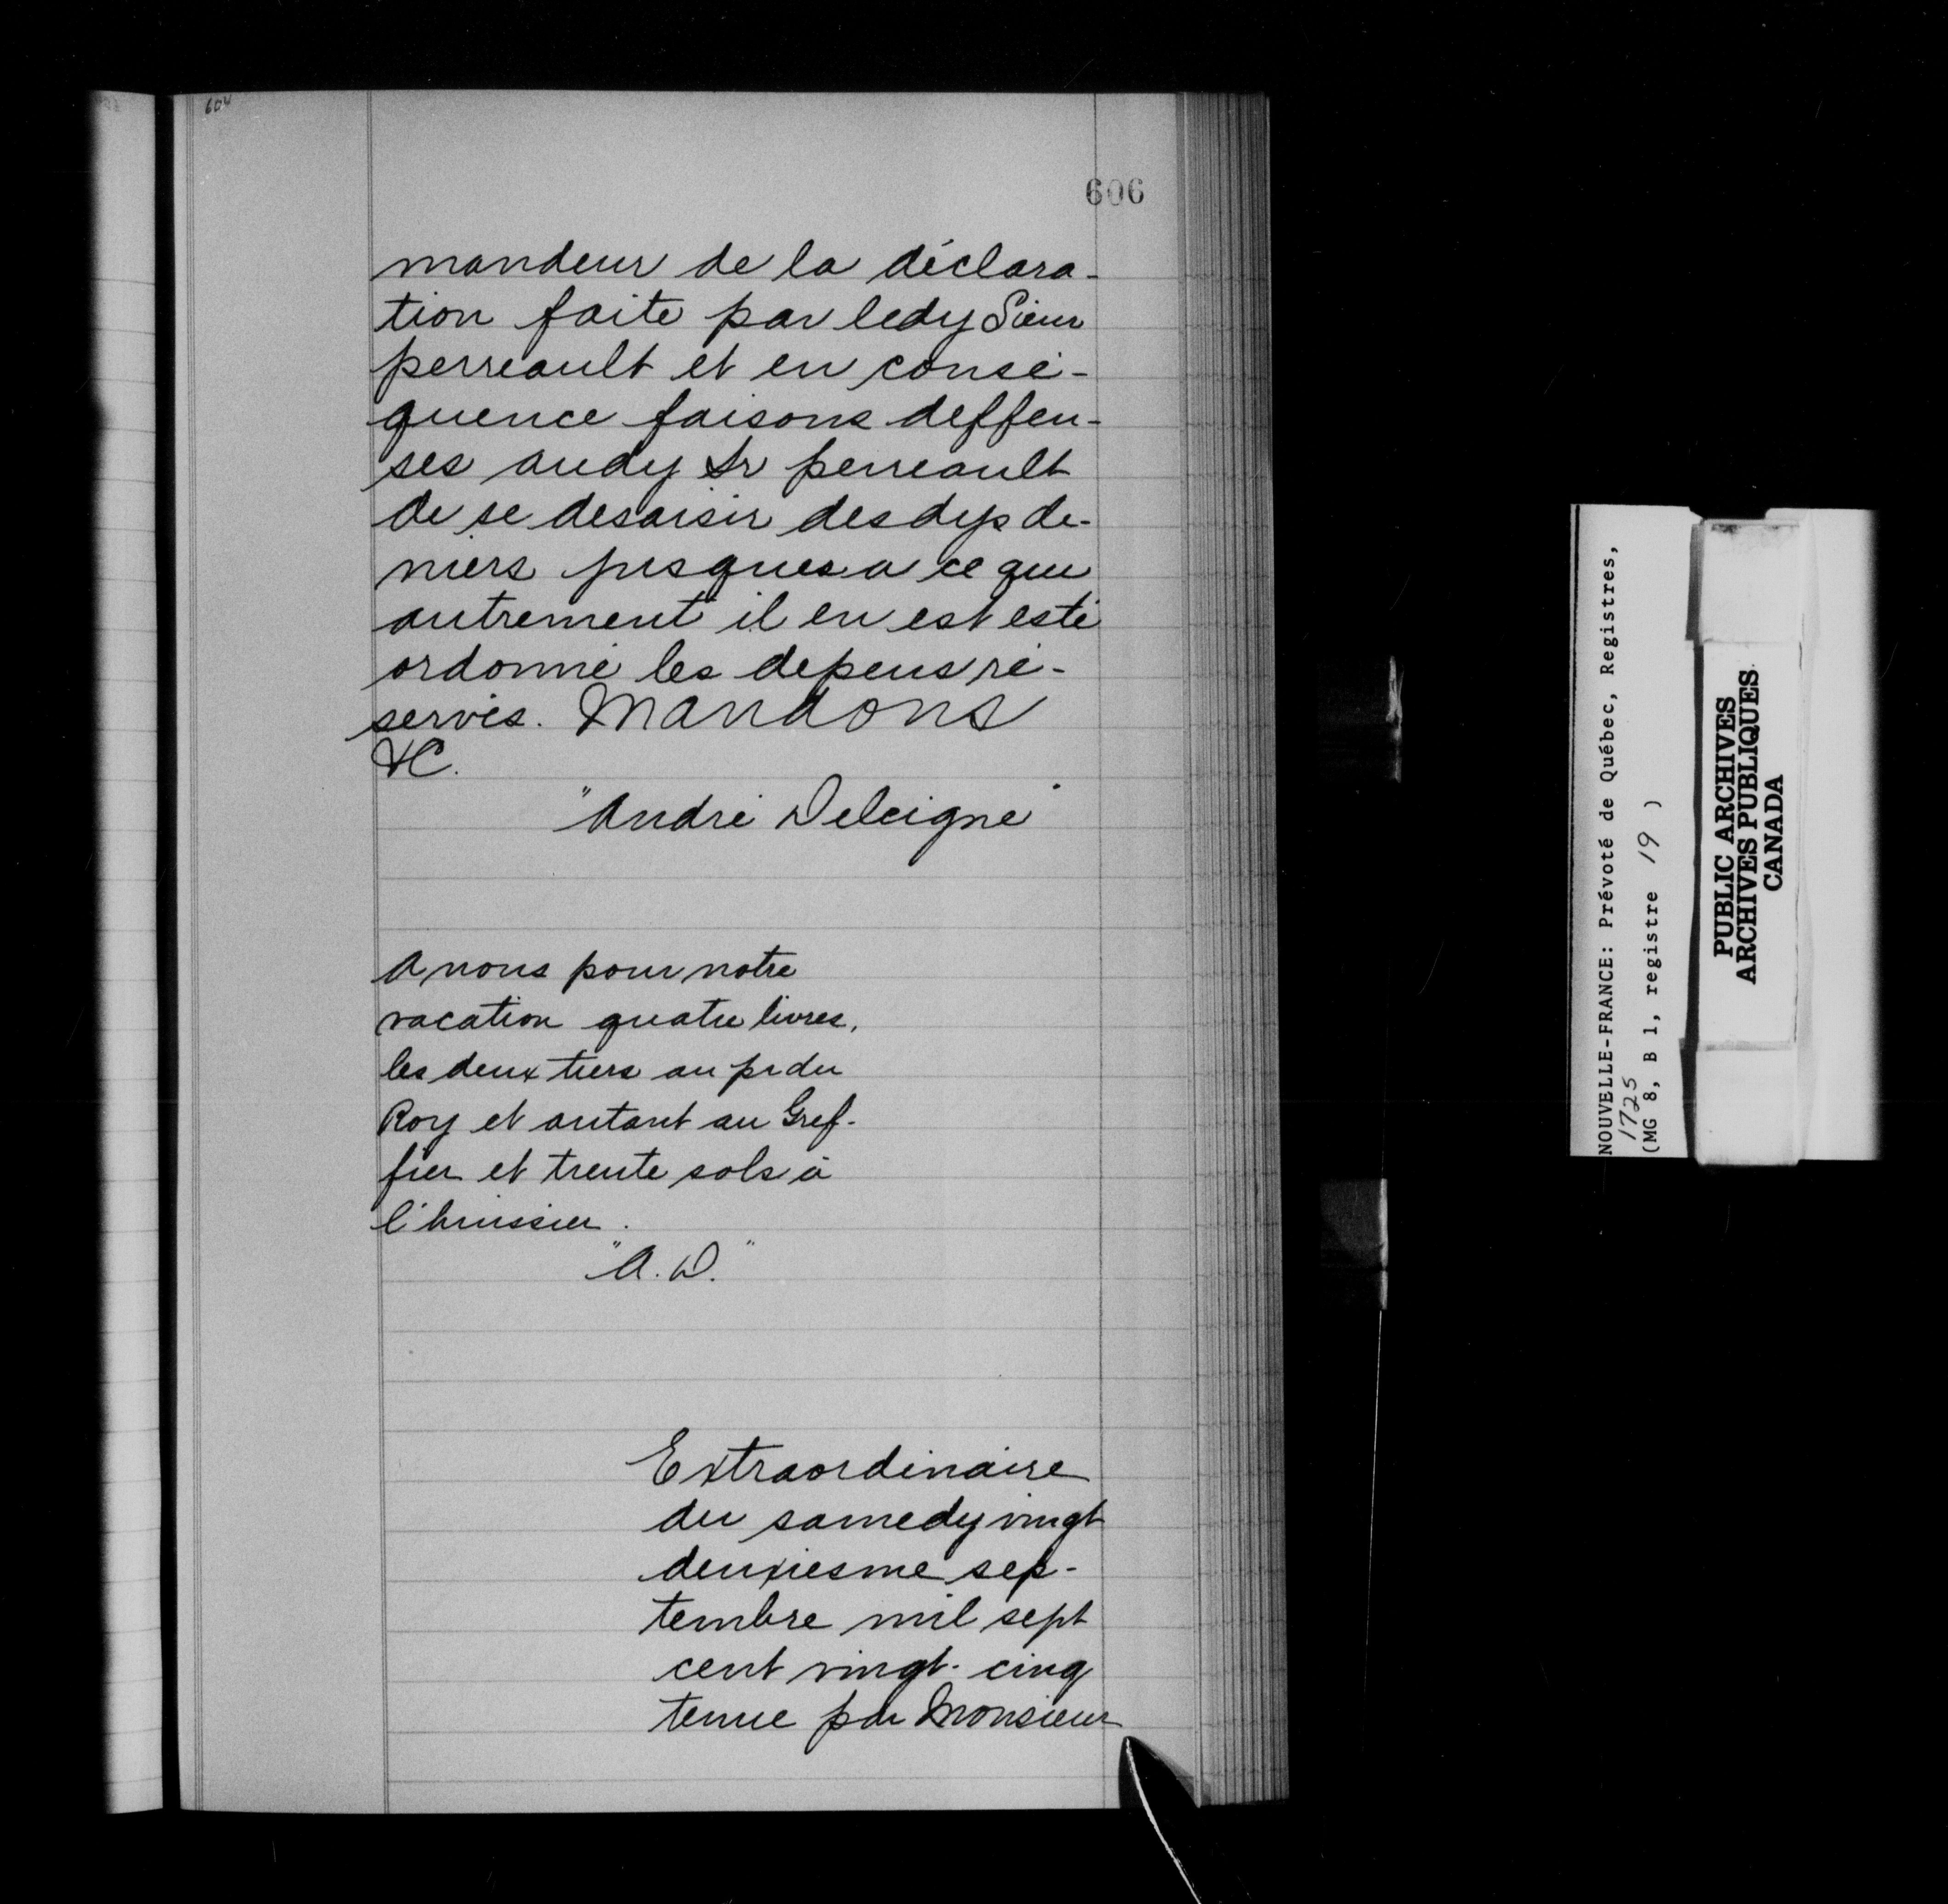 604
606
mandeur de la déclara-
tion faite par ledy Sieur
perreault et en consé-
quence faisons deffen-
ses audy Sr perreault
de se desaisir desdys de-
niers jusques a ce que
autrement il en est esté
ordonné les depens ré-
servés. Mandons
&C.
"André Deleigne"
A nous pour notre
vacation quatre livres,
les deux tiers au pr du
Roy et autant au Gref-
fier et trente sols à
l'huissier.
"A. D."
Extraordinaire
du samedy vingt
deuxiesme sep-
tembre mil sept
cent vingt-cinq
tenue par Monsieur
NOUVELLE-FRANCE: Prévoté de Québec, Registres,
1725
(MG 8, B 1, registre 19 )
PUBLIC ARCHIVES
ARCHIVES PUBLIQUES
CANADA